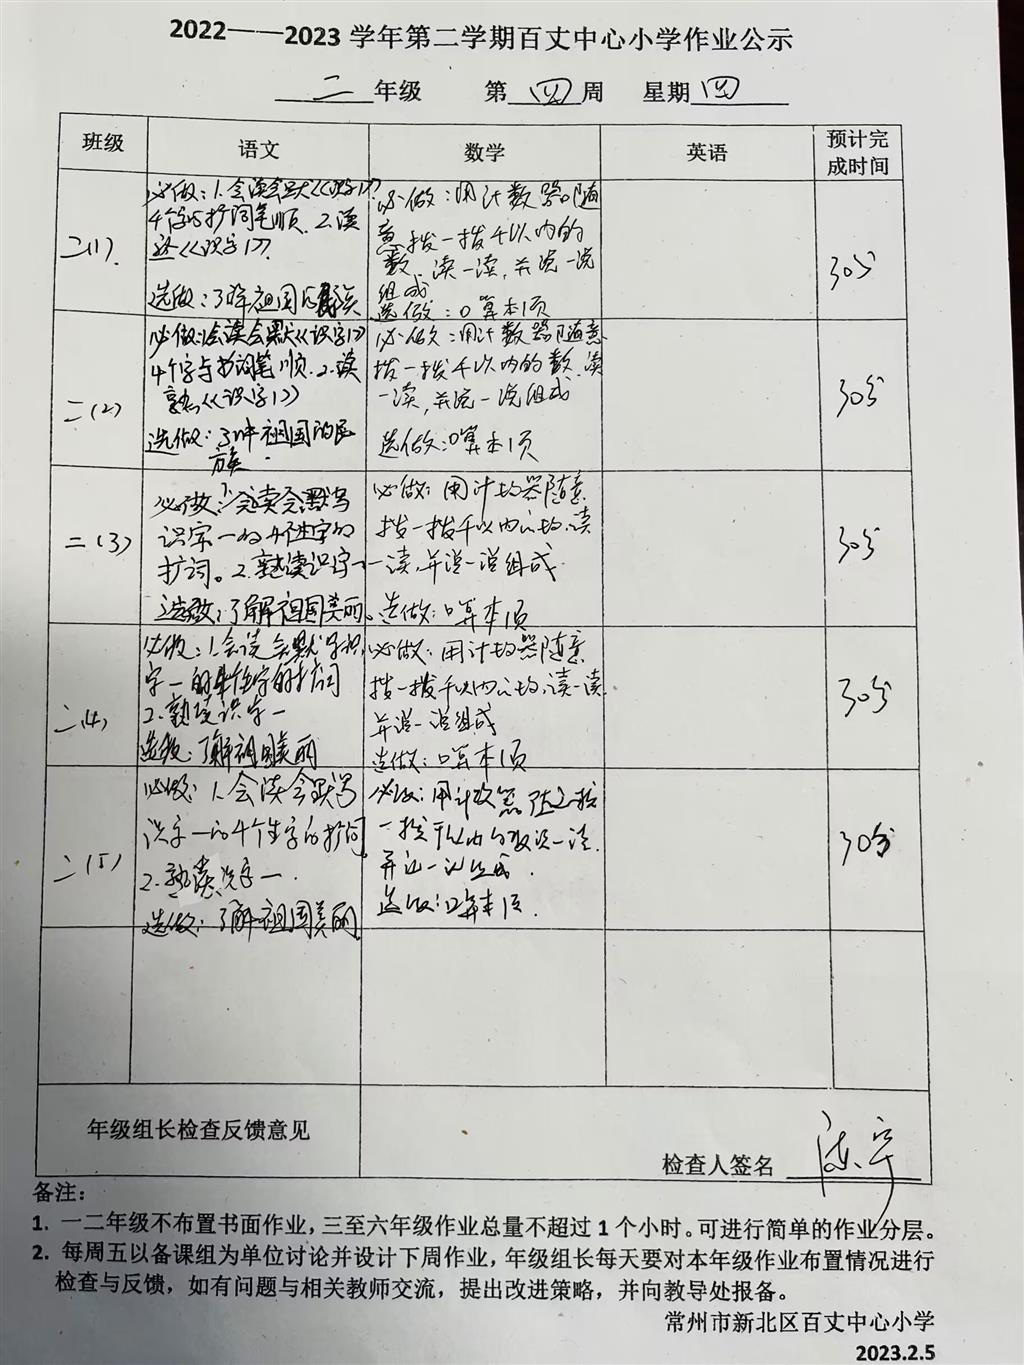 2022——2023 学年第二学期百丈中心小学作业公示
二 年级 第 四 周 星期 四
班级
语文
数学
英语
预计完
成时间
二(1).
必做：1.会读会默《识字1》
4个字与扩词笔顺. 2.读
《识字1》.
选做：了解祖国
必做：用计数器随
意拨一拨千以内的
数. 读一读, 并说一说
组成
选做：口算本1页
30分
二(2)
必做：1.会读会默《识字1》
4个字与扩词笔顺. 2.读
熟《识字1》
选做：了解祖国的民
族.
必做：用计数器随意
拨一拨千以内的数.读
一读,并说一说组成
选做：口算本1页
30分
二(3)
必做：1.会读会默写
识字一的4个生字的
扩词。2.熟读识字一
选做：了解祖国美丽。
必做：用计数器随意
拨一拨千以内的数.读
一读,并说一说组成.
选做：口算本1页
30分
二(4)
必做：1.会读会默写识
字一的4个生字的扩词
2.熟读识字一
选做：了解祖国美丽
必做：用计数器随意
拨一拨千以内的数.读一读.
并说一说组成
选做：口算本1页
30分
二(5)
必做：1.会读会默写
识字一的4个生字的扩词.
2.熟读识字一.
选做：了解祖国美丽
必做：用计数器随意拨
一拨千以内的数读一读.
并说一说组成.
选做：口算本1页.
30分
年级组长检查反馈意见
检查人签名
备注：
1. 一二年级不布置书面作业，三至六年级作业总量不超过 1 个小时。可进行简单的作业分层。
2. 每周五以备课组为单位讨论并设计下周作业，年级组长每天要对本年级作业布置情况进行
检查与反馈，如有问题与相关教师交流，提出改进策略，并向教导处报备。
常州市新北区百丈中心小学
2023.2.5